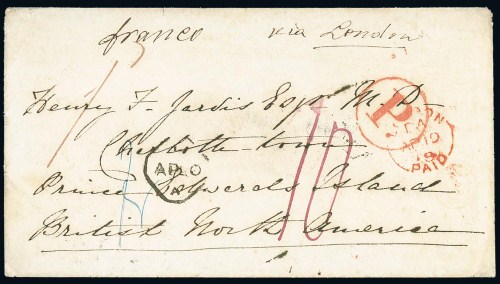 franco via London
Henry F. Jardis Esqr M. D.
Charlotte town
Prince Edwards Island
British North America
P
LONDON
AP 10
PAID
AP 10